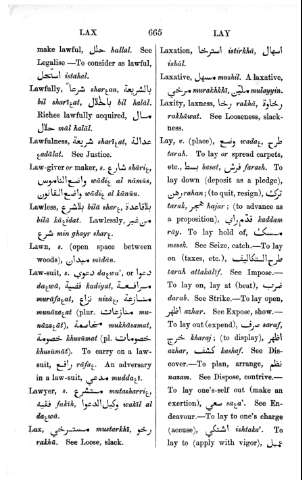 LAX 665 LAY
make lawful, حلّل hallal. See
Legalise —To consider as lawful,
استحلّ istahal.
Lawfully, شرعاً sharʒan, بالشريعة
bil shariʒat, بالحلال bil halál.
Riches lawfully acquired, مال
حلال mál halál.
Lawfulness, شريعة sharíʒat, عدالة
ʒadálat. See Justice.
Law-giver or maker, شارع s
واضع الناموس wádiʒ al námús,
واضع القانون wádiʒ al kánún.
Lawless, بلا شرع bilá sharʒ, بلا قاعدة
bilá káʒidat. Lawlessly, من غير
شرع min ghayr sharʒ.
Lawn, s. (open space between
woods), ميدان mídán.
Law-suit, s. دعوى daʒwa', or دعوا
daʒwá, قضية kadíyat, مرافعة
muráfaʒat, نزاع nizáʒ, منازعة
munázaʒat (plur. منازعات mu-
názaʒát), مخاصمة mukhásamat,
خصومة khusúmat (pl. خصومات
khusúmát). To carry on a law-
suit, رافع ráfaʒ. An adversary
in a law-suit, مدعي muddaʒí.
Lawyer, s. متشرع mutasharriʒ,
فقيه fakíh, وكيل الدعوا wakíl al
daʒwá.
Lax, مسترخي mustarkhí, رخو
rakhú. See Loose, slack.
Laxation, استرخا istirkhá, اسهال
ishál.
Laxative, مسهل moshil. A laxative,
مرخي murakhkhí, مليّن mulayyin.
Laxity, laxness, رخا rakhá, رخاوة
rakháwat. See Looseness, slack-
ness.
Lay, v. (place), وضع wadaʒ, طرح
tarah. To lay or spread carpets,
etc., بسط basat, فرش farash. To
lay down (deposit as a pledge),
رهن rahan; (to quit, resign), ترك
tarak, هجر hajar; (to advance as
a proposition), قدّم راي kaddam
ráy. To lay hold of, مسك
mesek. See Seize, catch.—To lay
on (taxes, etc.), طرح التكاليف
tarah attakalíf. See Impose.—
To lay on, lay at (beat), ضرب
darab. See Strike.—To lay open,
اظهر azhar. See Expose, show.—
To lay out (expend), صرف saraf,
خرج kharaj; (to display), اظهر
azhar, كشف kashaf. See Dis-
cover.—To plan, arrange, نظم
nazam. See Dispose, contrive.—
To lay one's-self out (make an
exertion), سعي saʒa'. See En-
deavour.—To lay to one's charge
(accuse), اشتكي ishtaka'. To
lay to (apply with vigor),